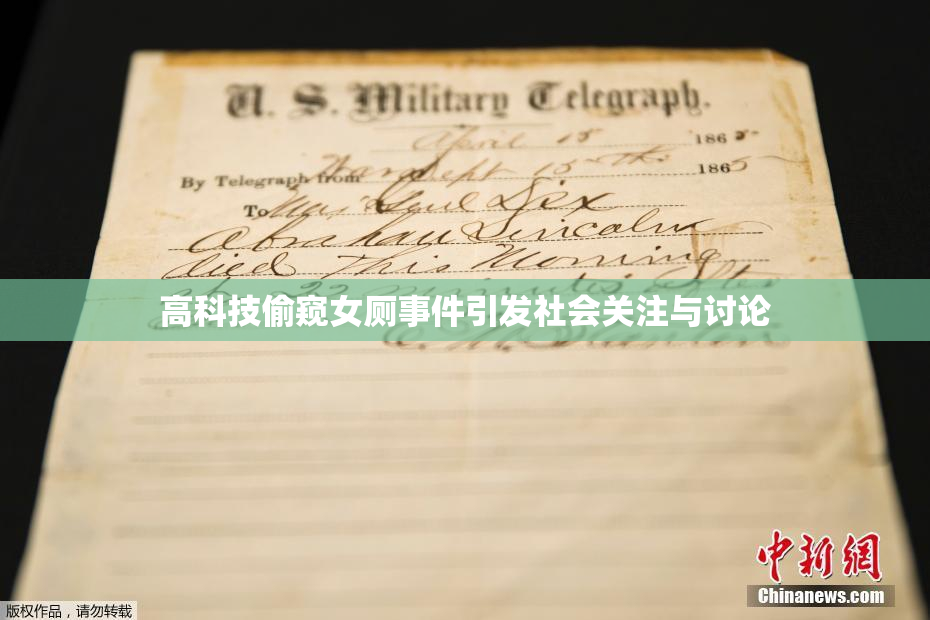 U. S. Military Telegraph.
April 15 1865
By Telegraph from War Dept 15th 1865
To Maj Genl Dix
Abraham Lincoln
died This Morning
at 22 minutes after
高科技偷窥女厕事件引发社会关注与讨论
E. M. Stanton
中新网
Chinanews.com
版权作品，请勿转载